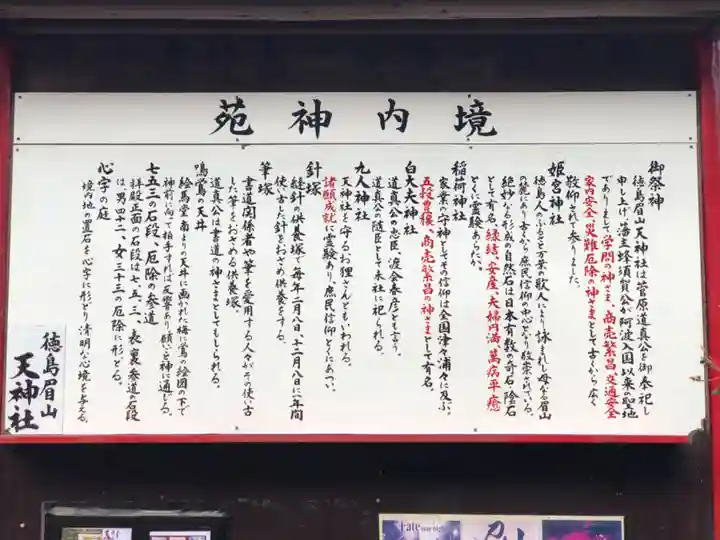 境内神苑
御祭神
徳島眉山天神社は菅原道真公を御奉祀し
申し上げ、藩主蜂須賀公が阿波入国以来の聖地
でありまして学問の神さま、商売繁昌、交通安全
家内安全、災難厄除の神さまとして古くから広く
敬仰されて参りました。
姫宮神社
徳島人のふるさと万葉の歌人により詠まれし母なる眉山
の麓にあり古から庶民信仰の中心となり敬崇されている。
絶妙なる形成の自然石は日本有数の奇石・陰石
として有名。縁結、安産、夫婦円満、萬病平癒
とくに霊験あらたか。
稲荷神社
家業の守神としてその信仰は全国津々浦々に及ぶ。
五穀豊穣、商売繁昌の神さまとして有名。
白大夫神社
道真公の忠臣、渡会春彦とも言う。
道真公の随臣として末社に祀られる。
九人神社
天神社を守るお狸さんともいわれる。
諸願成就に霊験あり、庶民信仰とくにあつい。
針塚
縫針の供養塚で毎年二月八日、十二月八日に一年間
使い古した針をおさめ供養をする。
筆塚
書道関係者や筆を愛用する人々がその使い古
した筆をおさめる供養塚。
道真公は書道の神さまとしてもしられる。
鳴鶯の天井
絵馬堂南よりの天井に画かれた梅に鶯の絵図の下で
神前に向って拍手すれば反響あり願いごと神に通じる。
七五三の石段、厄除の参道
拝殿正面の石段は七、五、三、表裏参道の石段
は男四十二、女三十三の厄除に形どる。
心字の庭
境内地の置石を心字に形どり清明な心境を与える。
徳島眉山
天神社
Fate